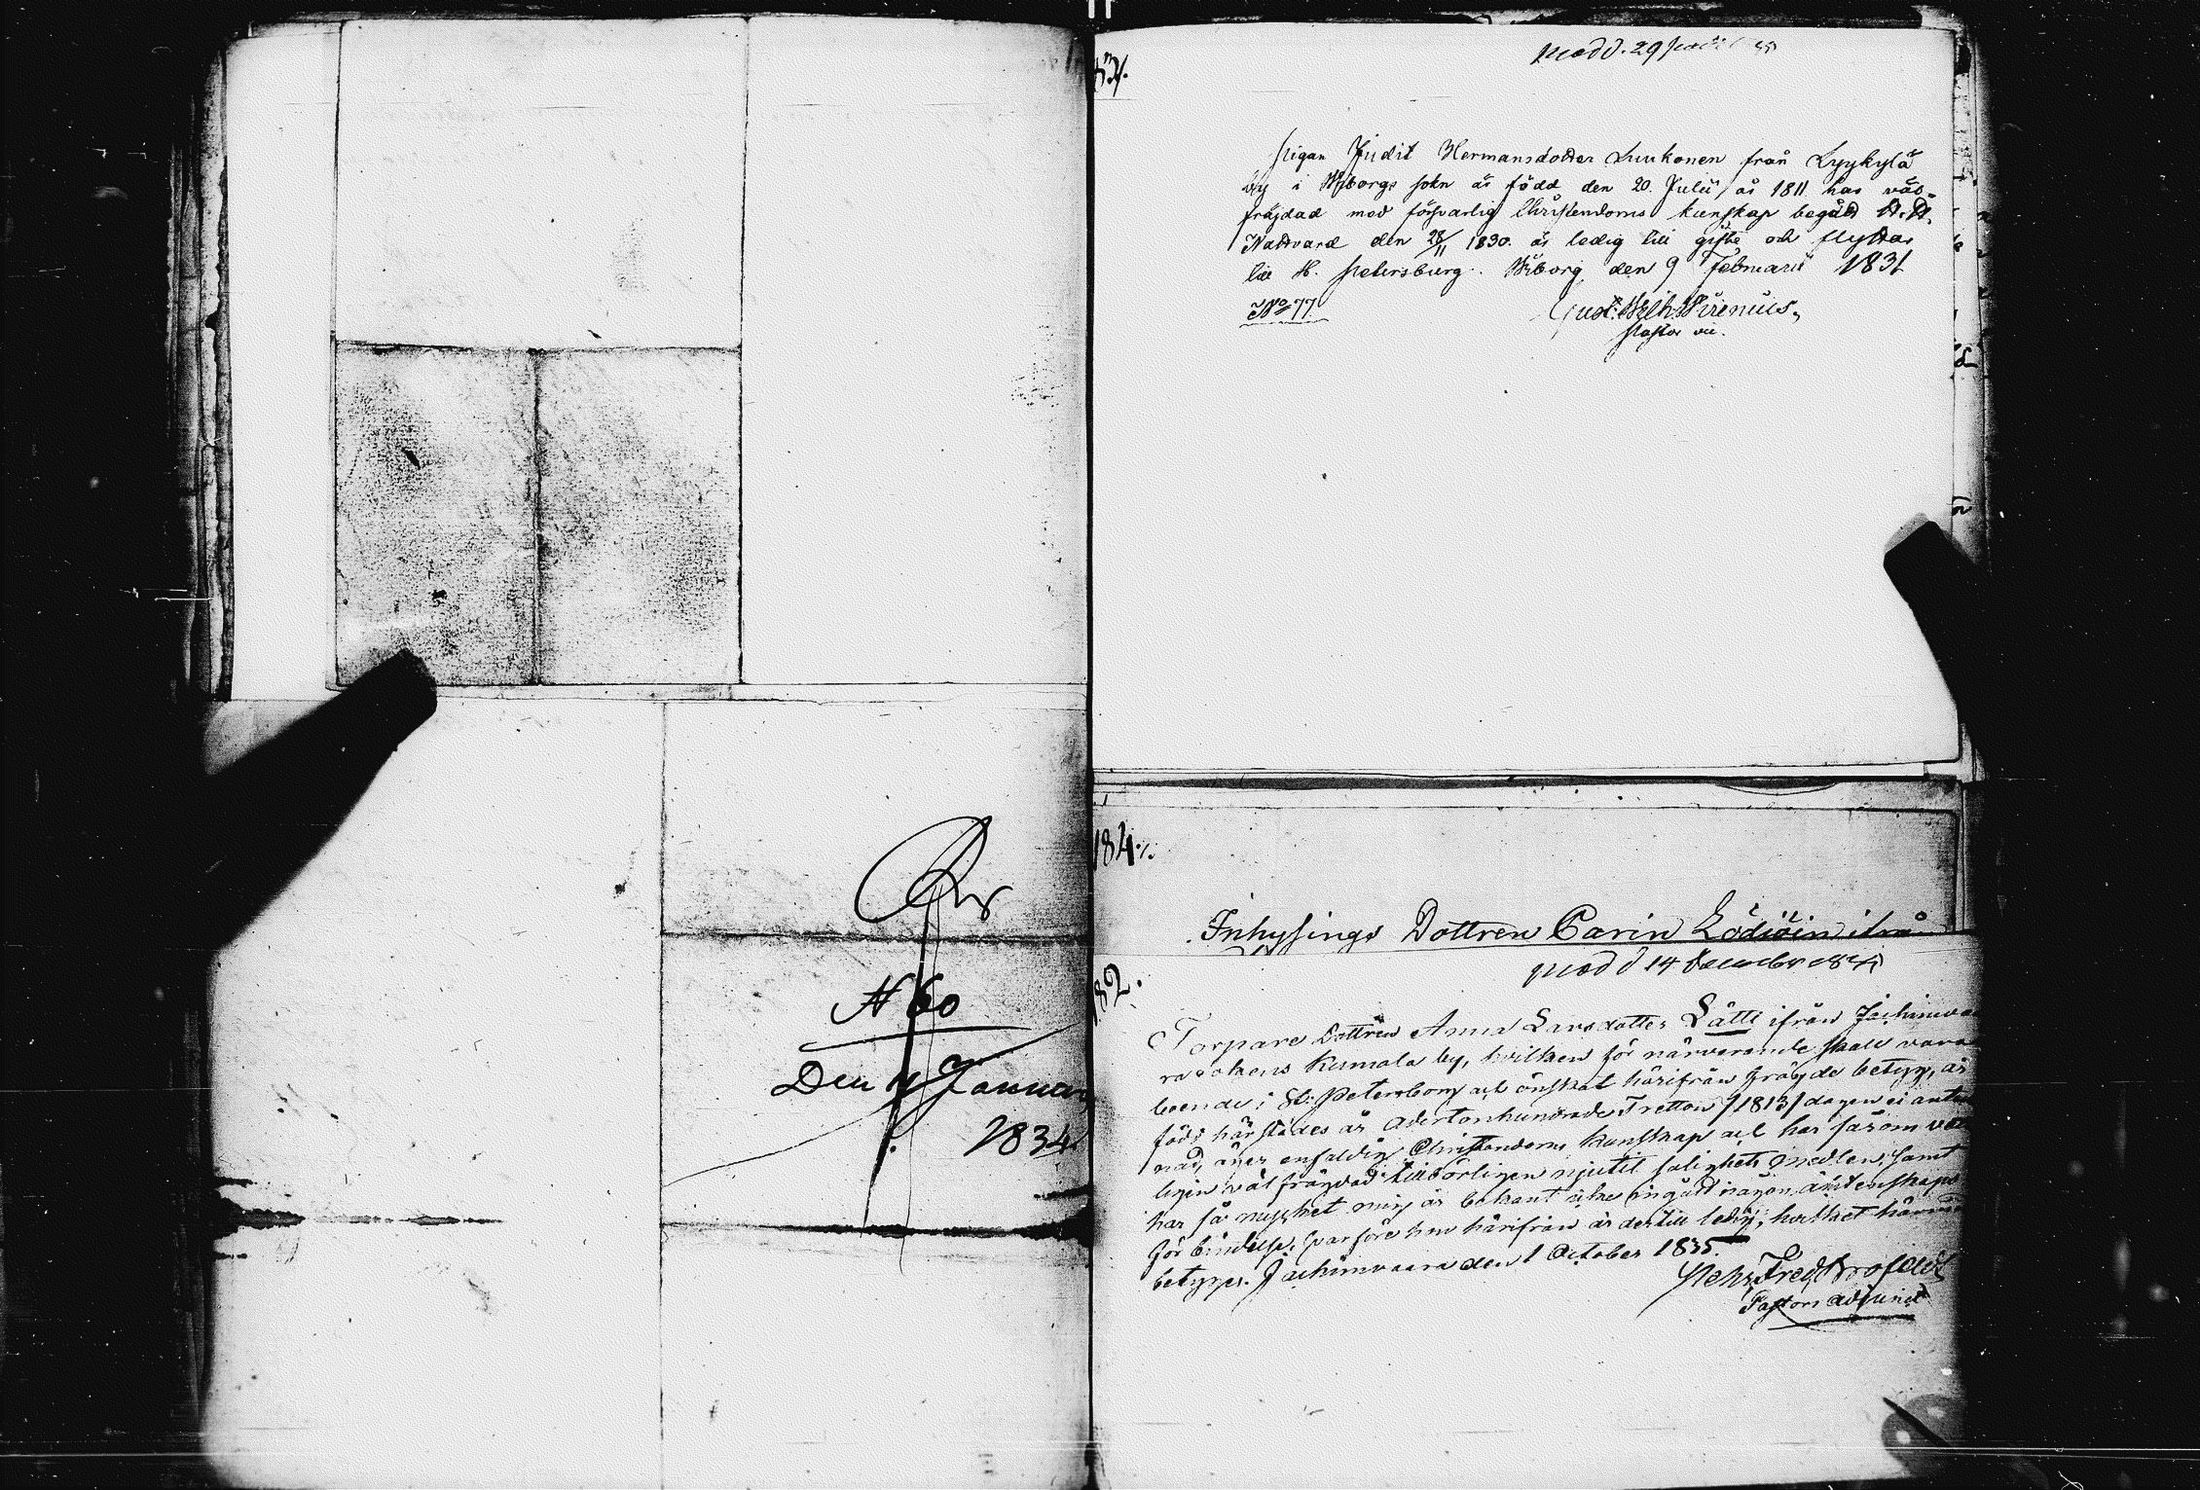 N 60
Den 4 Januar
1834
Pigan Judit Hermansdotter Luukonen från Lyykylä
by i Wiborgs sokn är född den 20. Julii år 1811 har väl-
fräjdad med försvarlig Christendoms kunskap begådt H. H.
Nattvard den 28/11 1830. är ledig till gifte och flyttar
till St. Petersburg. Wiborg den 9 Februarii 1831
No 77
Gust. Wilh. Wirenius,
Pastor vic.
184.
Inhysings Dottren Carin Lödiöin ifrån
182.
14 December
Torpare Dottren Anna Larsdotter Lätti ifrån Jackimva
ra sokens Kumola by, hvilken för närvarande skall vara
boende i St. Petersborg och önskat härifrån fräjde betyg, är
född härstädes år Adertonhundrade Tretton /1813/ dagen ei anteck
nad, äger enfaldig Christendoms kunskap och har såsom ver
ligen väl fräjdad tillbörligen njutit salighets medlen; samt
har så mycket mig är bekant icke ingådt någon äktenskaps
förbindelse, hvarföre hon härifrån är dertill ledig; hvilket härmed
betygas. Jackimvaara den 1 October 1835.
Fred
Pastors adjunct